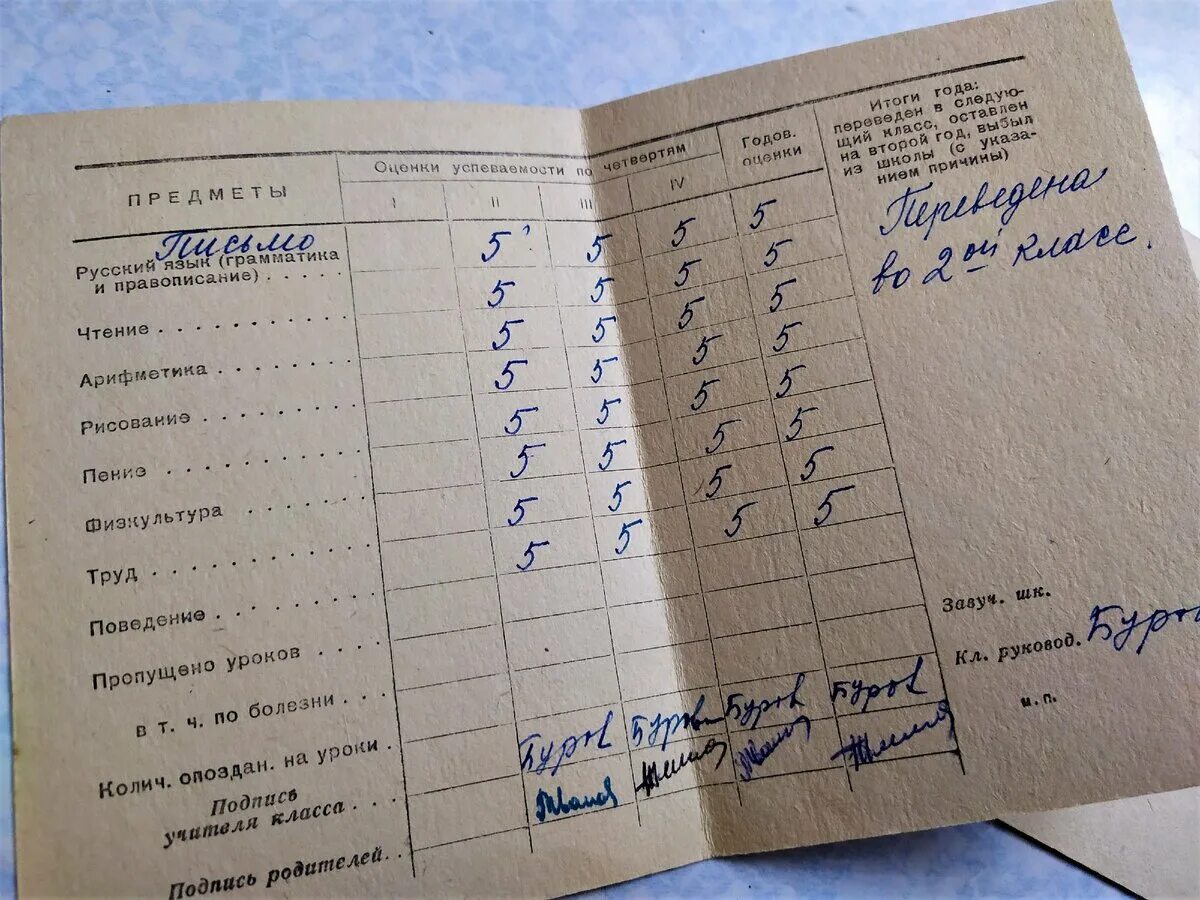 ПРЕДМЕТЫ
Оценки успеваемости по четвертям
I II III IV
Годов.
оценки
Итоги года:
переведен в следую-
щий класс, оставлен
на второй год, выбыл
из школы (с указа-
нием причины)
Письмо 5 5 5 5
Русский язык (грамматика
и правописание) . . . . 5 5 5 5
Чтение . . . . . . . . . . . 5 5 5 5
Арифметика . . . . . . . . 5 5 5 5
Рисование . . . . . . . . . 5 5 5 5
Пение . . . . . . . . . . . 5 5 5 5
Физкультура . . . . . . . 5 5 5 5
Труд . . . . . . . . . . . . 5 5 5 5
Поведение . . . . . . . .
Пропущено уроков . . . .
в т. ч. по болезни . . .
Колич. опоздан. на уроки .
Подпись
учителя класса . . . Буров Буров Буров
Подпись родителей . .
Переведена
во 2ой класс.
Завуч. шк.
Кл. руковод. Буров
м. п.